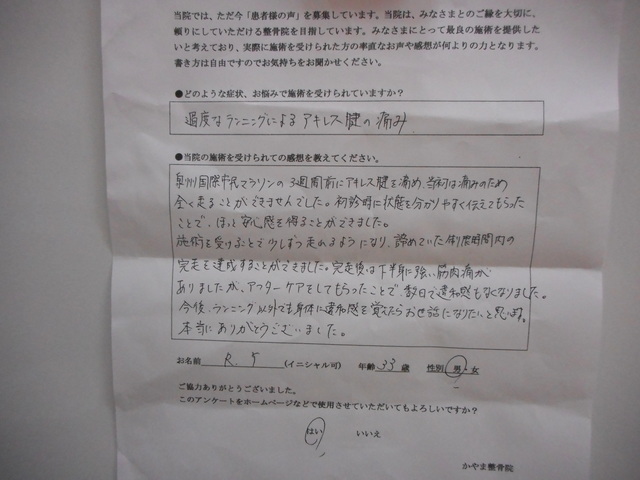 当院では、ただ今「患者様の声」を募集しています。当院は、みなさまとのご縁を大切に、
頼りにしていただける整骨院を目指しています。みなさまにとって最良の施術を提供した
いと考えており、実際に施術を受けられた方の率直なお声や感想が何よりの力となります。
書き方は自由ですのでお気持ちをお聞かせください。
●どのような症状、お悩みで施術を受けられていますか？
過度なランニングによるアキレス腱の痛み
●当院の施術を受けられての感想を教えてください。
泉州国際市民マラソンの3週間前にアキレス腱を痛め、当初は痛みのため
全く走ることができませんでした。初診時に状態を分かりやすく伝えてもらった
ことで、ほっと安心感を得ることができました。
施術を受けることで少しずつ走れるようになり、諦めていた制限時間内の
完走を達成することができました。完走後は下半身に強い筋肉痛が
ありましたが、アフターケアをしてもらったことで、数日で違和感もなくなりました。
今後、ランニング以外でも身体に違和感を覚えたらお世話になりたいと思います。
本当にありがとうございました。
お名前 R. Y (イニシャル可) 年齢 33 歳 性別 男・女
ご協力ありがとうございました。
このアンケートをホームページなどで使用させていただいてもよろしいですか？
はい いいえ
かやま整骨院